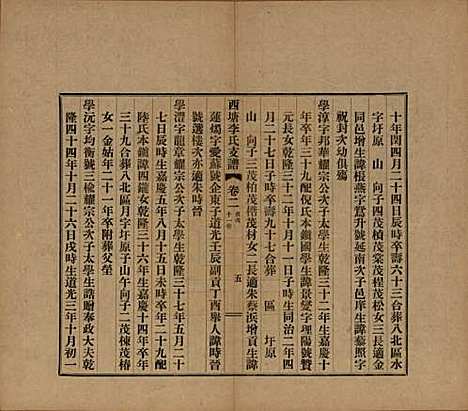 十年閏四月二十四日辰時卒壽六十三合葬八北區水
字圩原　山　向子四茂楨茂棠茂桯茂松女三長適金
同邑增生諱根燕字鴛升號延南次子邑庠生諱慕照字
封次幼俱殤
學淳字邦華耀宗公次子太學生乾隆三十二年生嘉慶十
年卒年三十九配倪氏本鎭國學生諱景巒字理陽號贊
元長女乾隆三十二年十月十一日子時生同治二年四
月二十七日子時卒壽九十七合葬　區　圩原
山　向子三茂栢茂楷茂材女二長適朱泰浜增貢生諱
西塘李氏支譜　卷二　五
蓮燭字愛蘇號金東子道光壬辰副貢丁酉舉人諱時晉
號選樓次亦適朱時晉
學澧字龍章耀宗公次子太學生乾隆三十七年五月二十
七日辰時生嘉慶五年八月十五日未時卒年二十九配
陸氏本鎭諱四鎭女乾隆二十六年生嘉慶十四年卒年
三十九合葬八北區月字圩原子山午向子二茂楝茂椿
女一金姑二十一年卒附葬父塋
學沅字均衡號三檢耀宗公次子太學生誥贈奉政大夫乾
隆四十四年十月二十六日戌時生道光三年十月初一